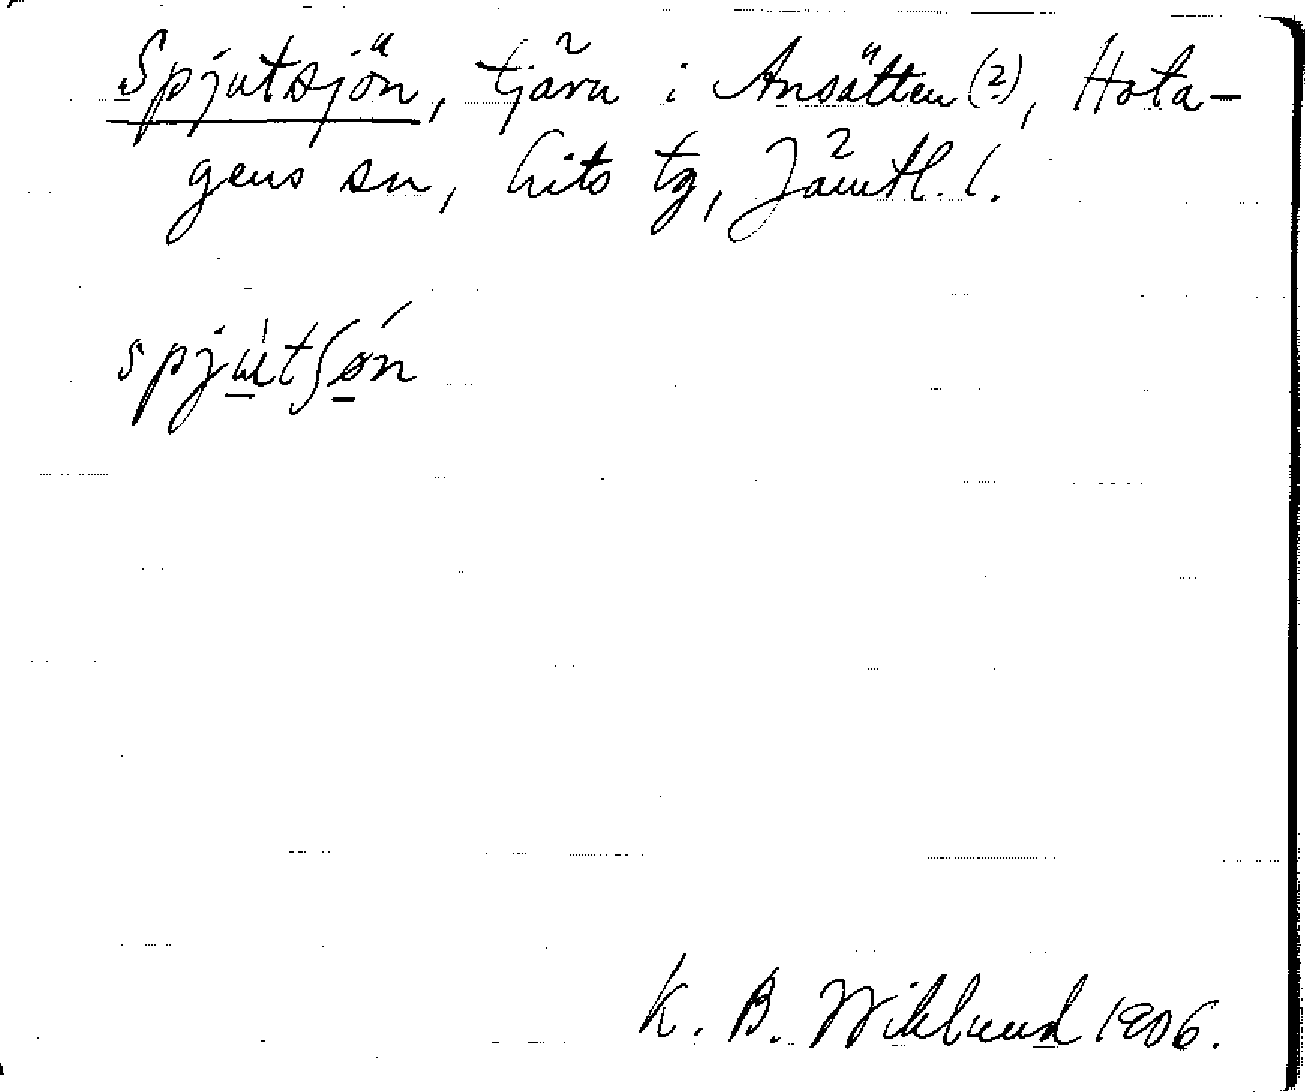 Spjutsjön, tjärn i Ansätten (2), Hota-
gens sn, Lits tg, Jämtl. l.
spju̲tʃø̲n
K. B. Wiklund 1906.